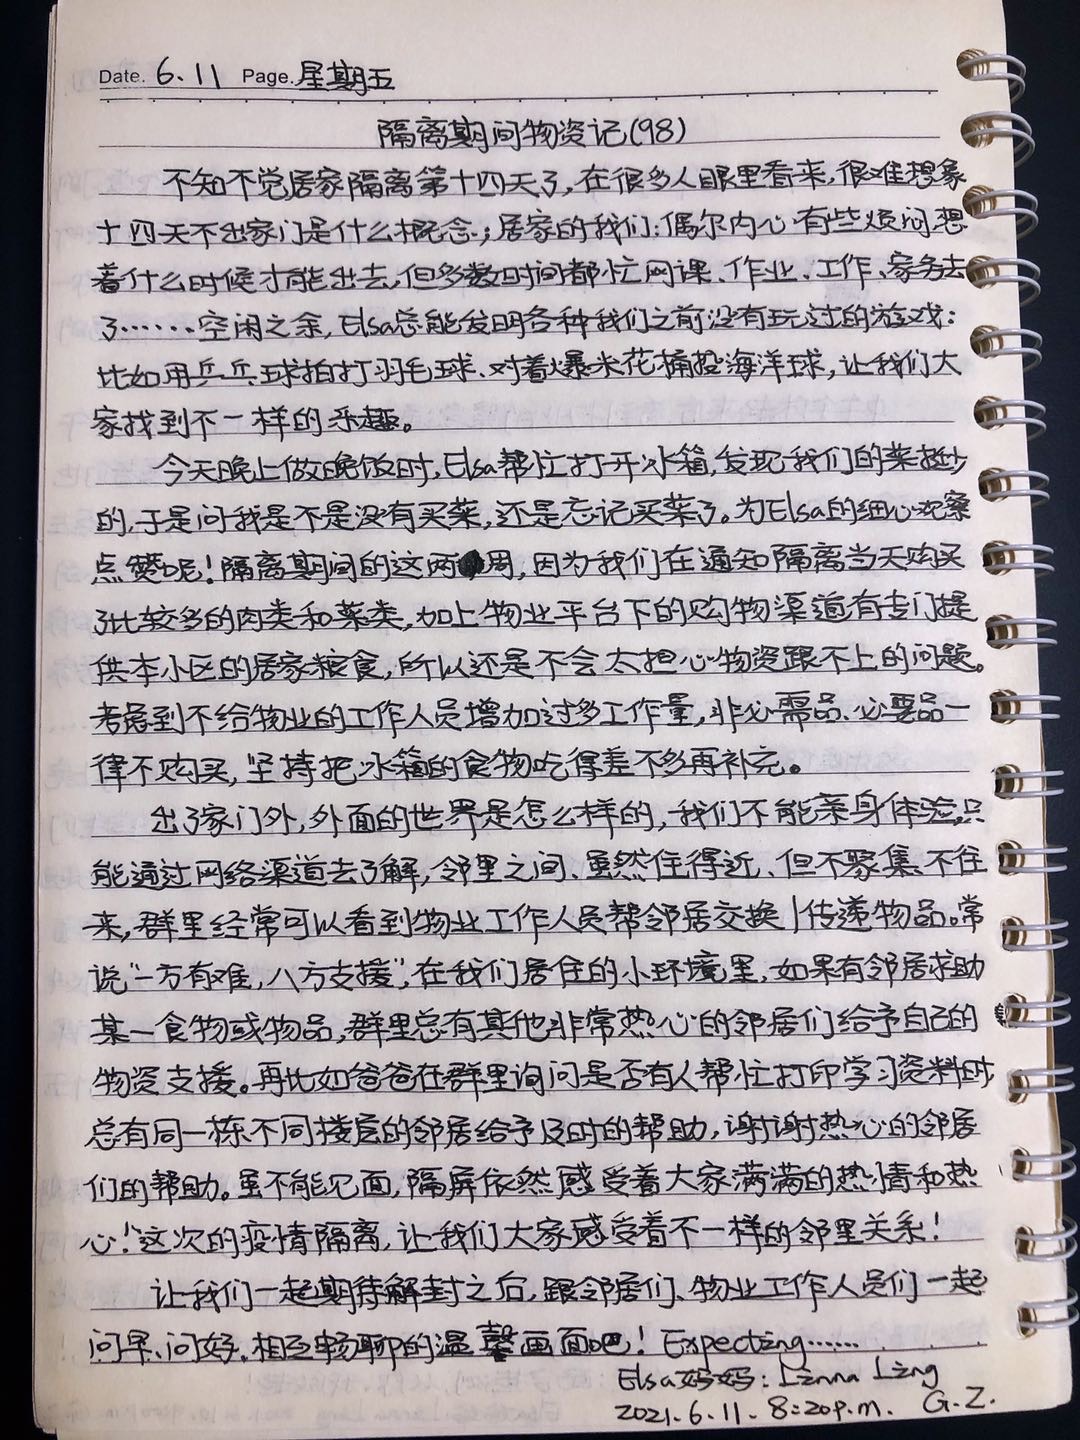 Date. 6.11 Page. 星期五
隔离期间物资记(98)
不知不觉居家隔离第十四天了,在很多人眼里看来,很难想象
十四天不出家门是什么概念;居家的我们:偶尔内心有些烦闷想
着什么时候才能出去,但多数时间都忙网课、作业、工作、家务去
了……空闲之余,Elsa总能发明各种我们之前没有玩过的游戏:
比如用乒乓球拍打羽毛球、对着爆米花桶投海洋球,让我们大
家找到不一样的乐趣。
今天晚上做晚饭时,Elsa帮忙打开冰箱,发现我们的菜挺少
的,于是问我是不是没有买菜,还是忘记买菜了。为Elsa的细心观察
点赞呢!隔离期间的这两周,因为我们在通知隔离当天购买
了比较多的肉类和菜类,加上物业平台下的购物渠道有专门提
供本小区的居家粮食,所以还是不会太担心物资跟不上的问题。
考虑到不给物业的工作人员增加过多工作量,非必需品、必要品一
律不购买,坚持把冰箱的食物吃得差不多再补充。
出了家门外,外面的世界是怎么样的,我们不能亲身体验,只
能通过网络渠道去了解,邻里之间、虽然住得近、但不聚集、不往
来,群里经常可以看到物业工作人员帮邻居交换/传递物品。常
说“一方有难,八方支援”,在我们居住的小环境里,如果有邻居求助
某一食物或物品,群里总有其他非常热心的邻居们给予自己的
物资支援。再比如爸爸在群里询问是否有人帮忙打印学习资料时,
总有同一栋不同楼层的邻居给予及时的帮助,谢谢热心的邻居
们的帮助。虽不能见面,隔屏依然感受着大家满满的热情和热
心!这次的疫情隔离,让我们大家感受着不一样的邻里关系!
让我们一起期待解封之后,跟邻居们、物业工作人员们一起
问早、问好、相互畅聊的温馨画面吧!Expecting……
Elsa妈妈:Lianna Ling
2021.6.11. 8:20p.m. G.Z.